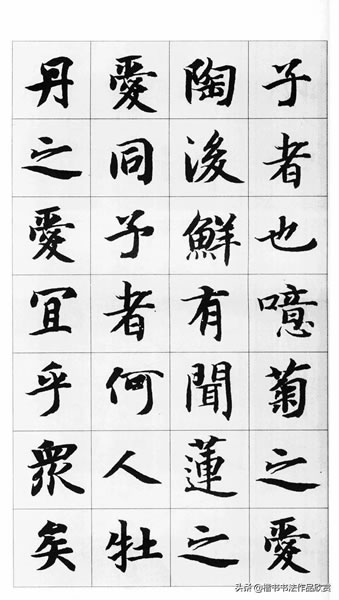 子者也噫菊之愛
陶後鮮有聞蓮之
愛同予者何人牡
丹之愛冝乎眾矣
头条 @楷书书法作品欣赏